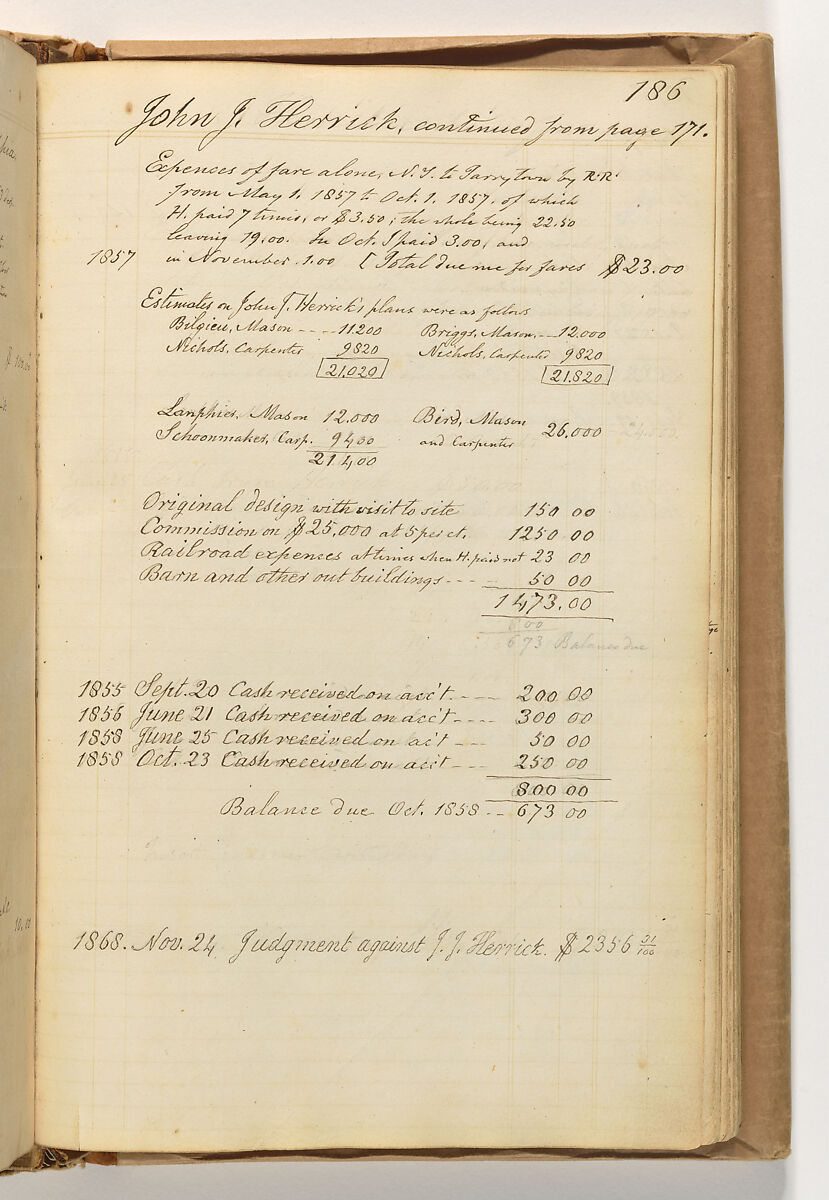 186
John J. Herrick, continued from page 171.
Expenses of fare alone, N.Y. to Tarrytown by R.R.
from May 1. 1857 to Oct. 1. 1857. of which
H. paid 7 times, or $3.50; the whole being 22.50
leaving 19.00. In Oct. I paid 3.00, and
1857 in November 1.00 [Total due me for fares $23.00
Estimates on John J. Herrick's plans were as follows
Bilgieu, Mason ---- 11.200 Briggs, Mason, -- 12.000
Nichols, Carpenter 9820 Nichols, Carpenter 9820
21,020 21.820
Lanphier, Mason 12.000 Bird, Mason
Schoonmaker, Carp. 9400 and Carpenter 26.000
21400
Original design with visit to site 150 00
Commission on $25,000 at 5 per ct. 1250 00
Railroad expences at times when H. paid not 23 00
Barn and other out buildings --- 50 00
1473.00
800
673 Balance due
1855 Sept. 20 Cash received on acc't ---- 200 00
1856 June 21 Cash received on acc't ---- 300 00
1858 June 25 Cash received on ac't --- 50 00
1858 Oct. 23 Cash received on acc't --- 250 00
800 00
Balance due Oct. 1858 -- 673 00
1868. Nov. 24 Judgment against J. J. Herrick. $2356 31/100